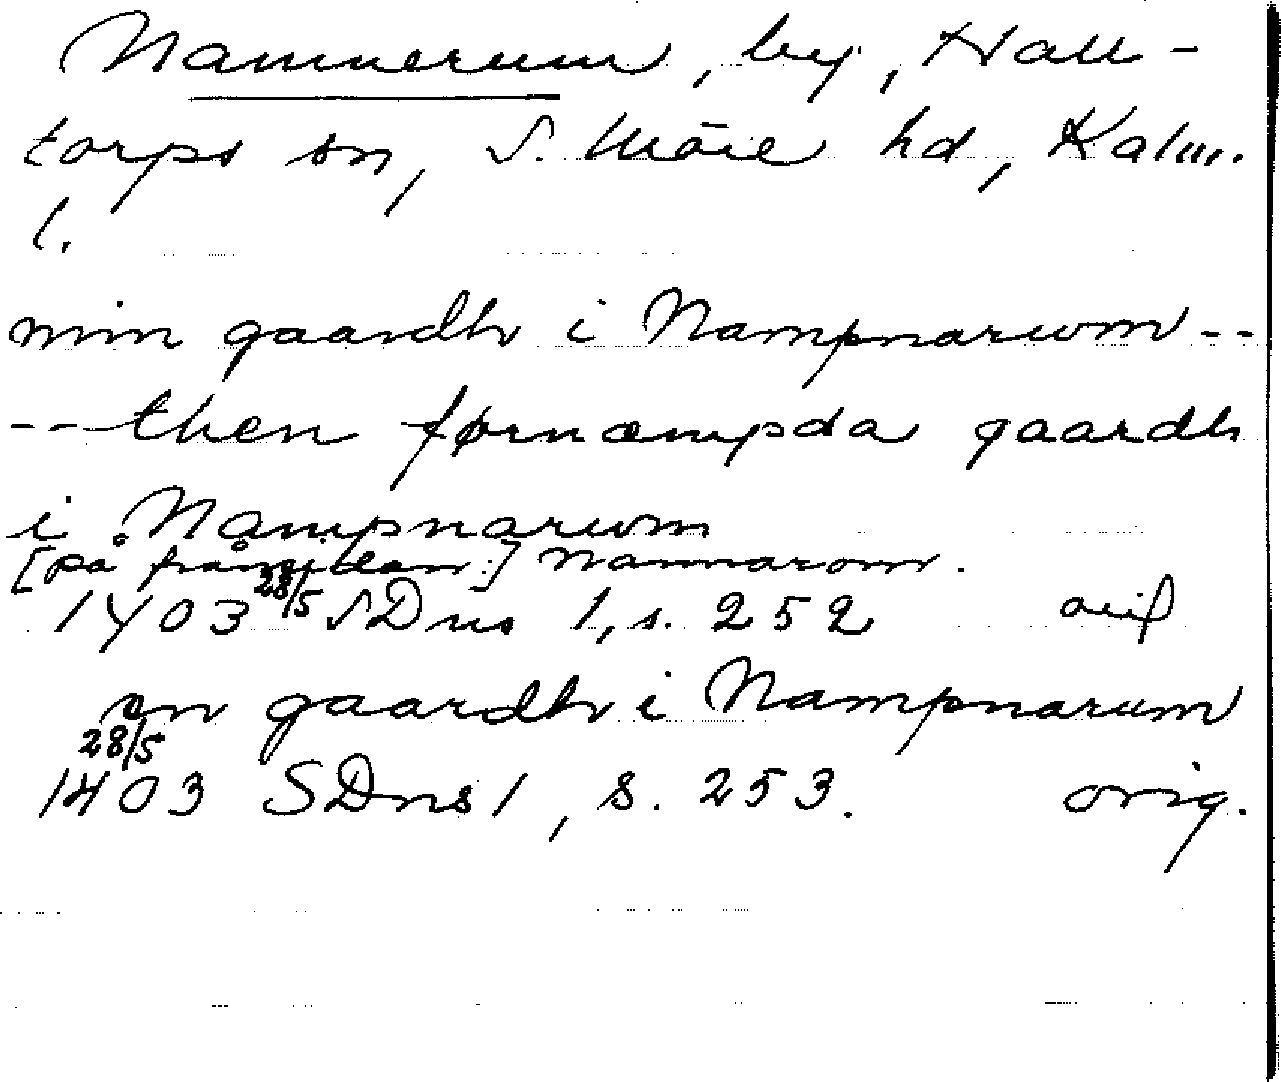 Namnerum, by, Hall-
torps sn, S. Möre hd, Kalm.
l.
min gaardh i Nampnarwm--
--thenførnæmpda gaardh
i Nampnarwm
[på frånsidan:] Nannarom.
1403 28/5 SDns 1, s. 252 orig
en gaardh i Nampnarum
28/5
1403 SDns 1, s. 253. orig.